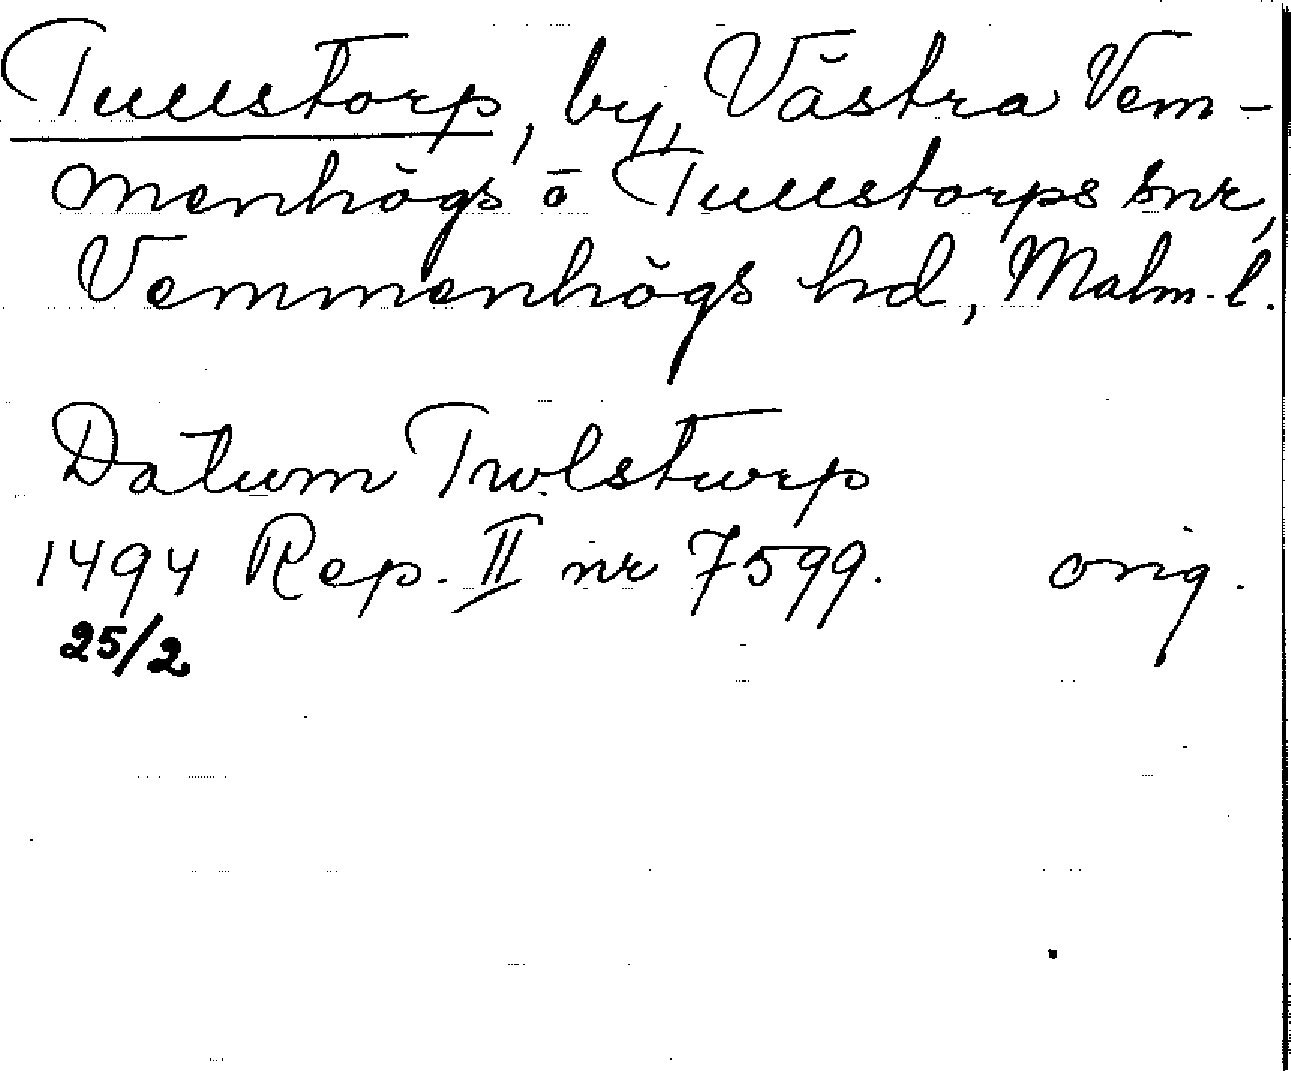 Tullstorp, by, Västra Vem-
menhögs o Tullstorps snr,
Vemmenhögs hd, Malm. l.
Datum Trwlsturp
1494 Rep. II nr 7599. orig.
25/2